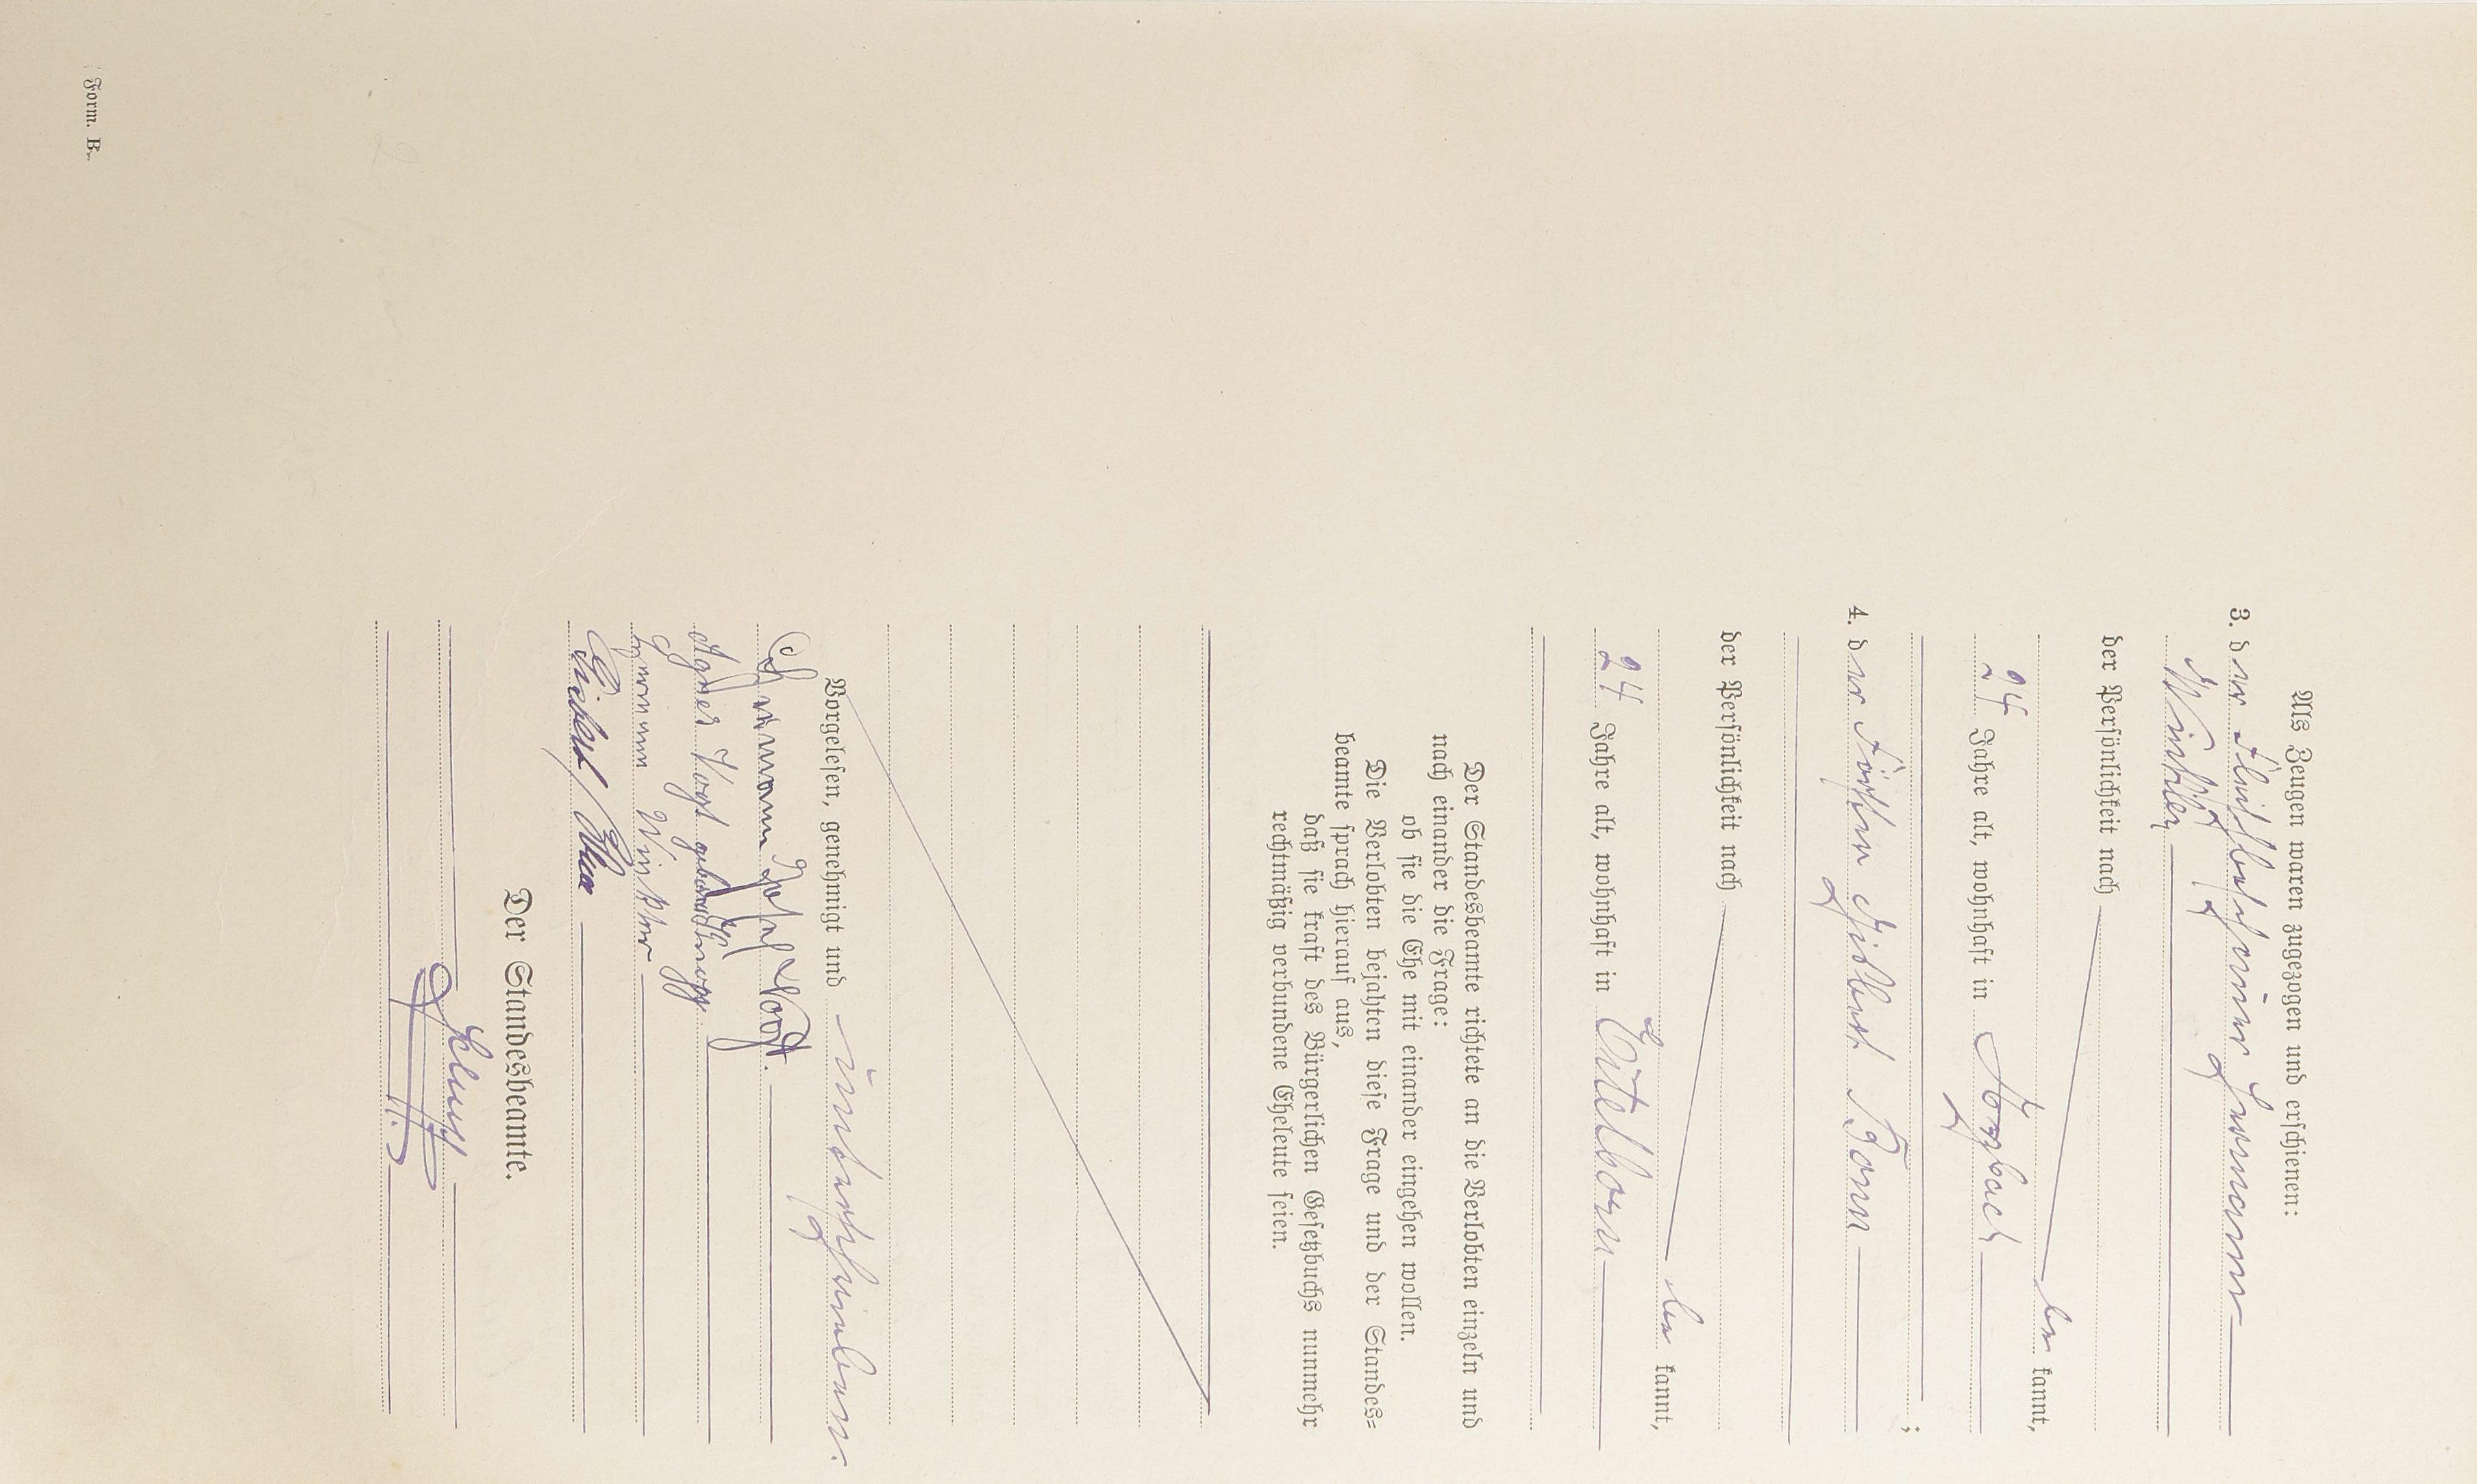 Als Zeugen waren zugezogen und erschienen:
3. der Hermann
Winkler
der Persönlichkeit nach
kannt,
24 Jahre alt, wohnhaft in
4. der Bonn
;
der Persönlichkeit nach
kannt,
24 Jahre alt, wohnhaft in Eitelborn
Der Standesbeamte richtete an die Verlobten einzeln und
nach einander die Frage:
ob sie die Ehe mit einander eingehen wollen.
Die Verlobten bejahten diese Frage und der Standes-
beamte sprach hierauf aus,
daß sie kraft des Bürgerlichen Gesetzbuchs nunmehr
rechtmäßig verbundene Eheleute seien.
Vorgelesen, genehmigt und unterschrieben.
Hermann Josef Vogt.
Agnes Vogt
Hermann Winkler
Der Standesbeamte.
Form. B.